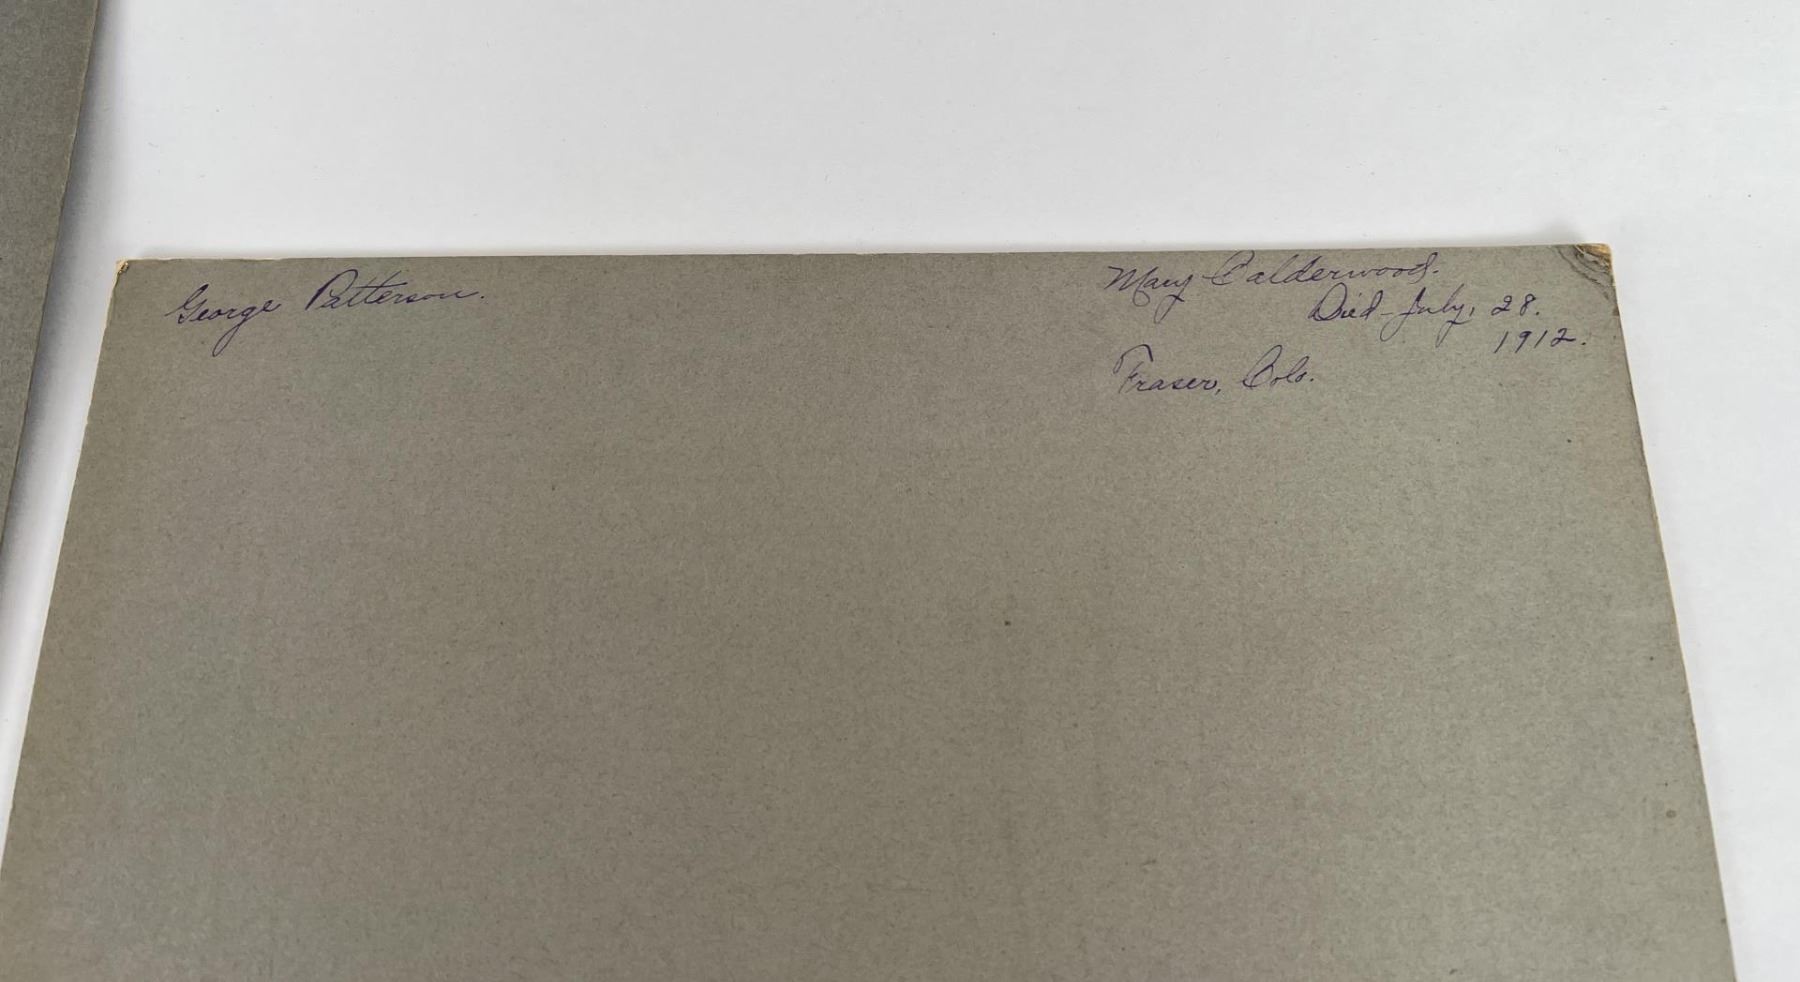 George Patterson.
Mary Calderwood.
Died - July, 28.
1912.
Fraser, Colo.